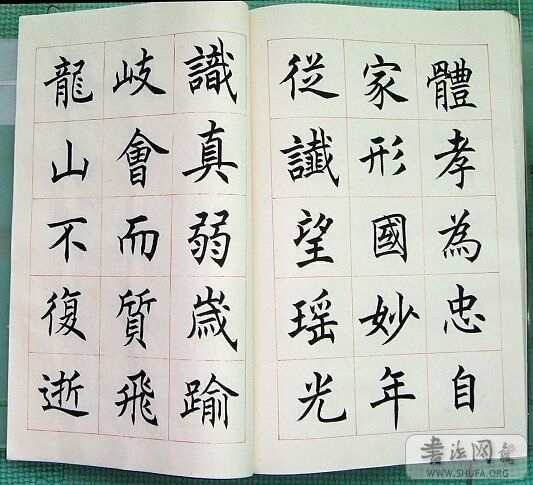 體孝為忠自
家形國妙年
從讖望瑶光
識真弱嵗踰
岐會而質飛
龍山不復逝
书法网
WWW.SHUFA.ORG